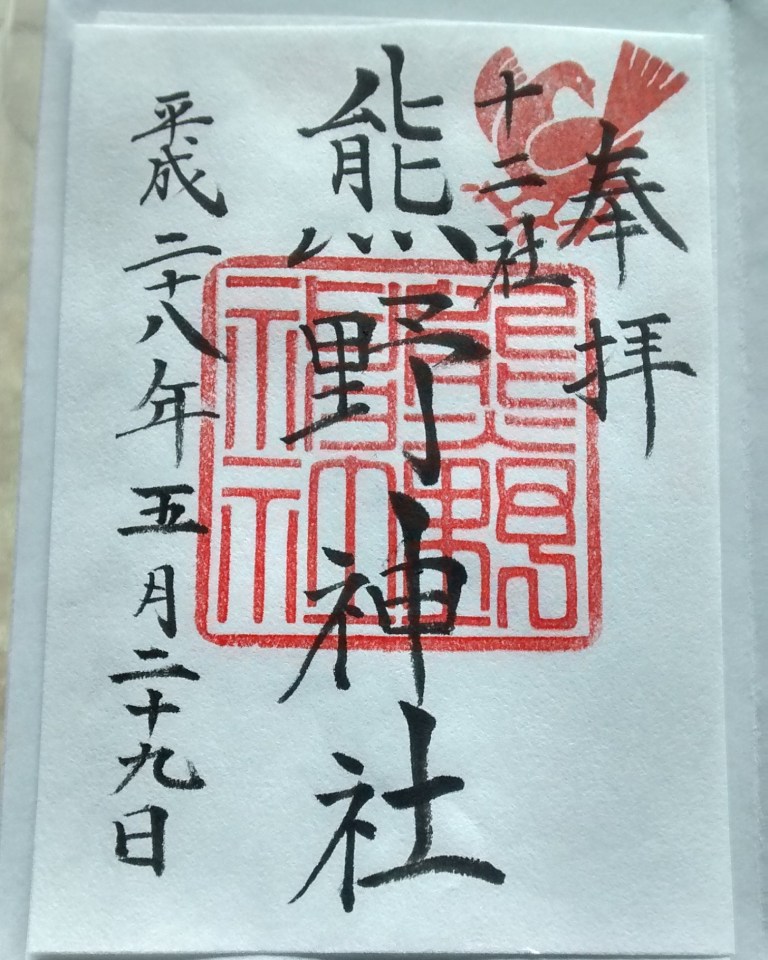 奉拝
十二社
熊野神社
平成二十八年五月二十九日